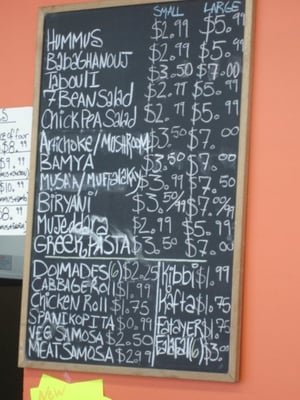 SMALL LARGE
HUMMUS $2.99 $5.99
BabagHanouj $2.99 $5.99
Tabouli $3.50 $7.00
7 Bean Salad $2.99 $5.99
Chick Pea Salad $2.99 $5.99
Artichoke/MUSHROOM $3.50 $7.00
BAMYA $3.50 $7.00
$3.99 $7.50
BIRYANI
Mujeddara $2.99 $5.99
GREEK PASTA $3.50 $7.00
DOLMADES(6) $2.25 Kibbi $1.99
CABBAGE Roll $1.99
Chicken Roll $1.75 Kafta $1.75
SPANIKOPITA $0.99 Fatayer $1.75
VEG SAMOSA $2.50 Falafal(6) $3.00
MEAT SAMOSA $2.99
New